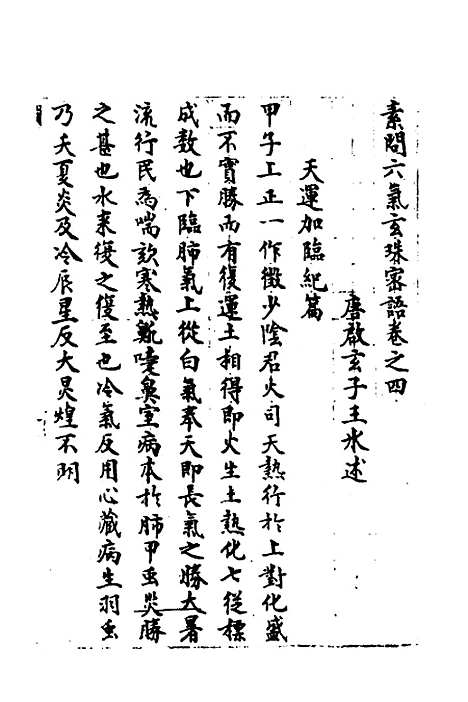 素問六氣玄珠密語卷之四
唐啟玄子王冰述
天運加臨紀篇
甲子上正一作徵少陰君火司天熱行於上對化盛
而不實勝而有復運土相得即火生土熱化七從標
成數也下臨肺氣上從白氣奉天即長氣之勝大暑
流行民為喘欬寒熱鼽嚏鼻窒病本於肺甲虫災勝
之甚也水来復之復至也冷氣反用心藏病生羽虫
乃夭夏炎及冷辰星反大昃煌不明